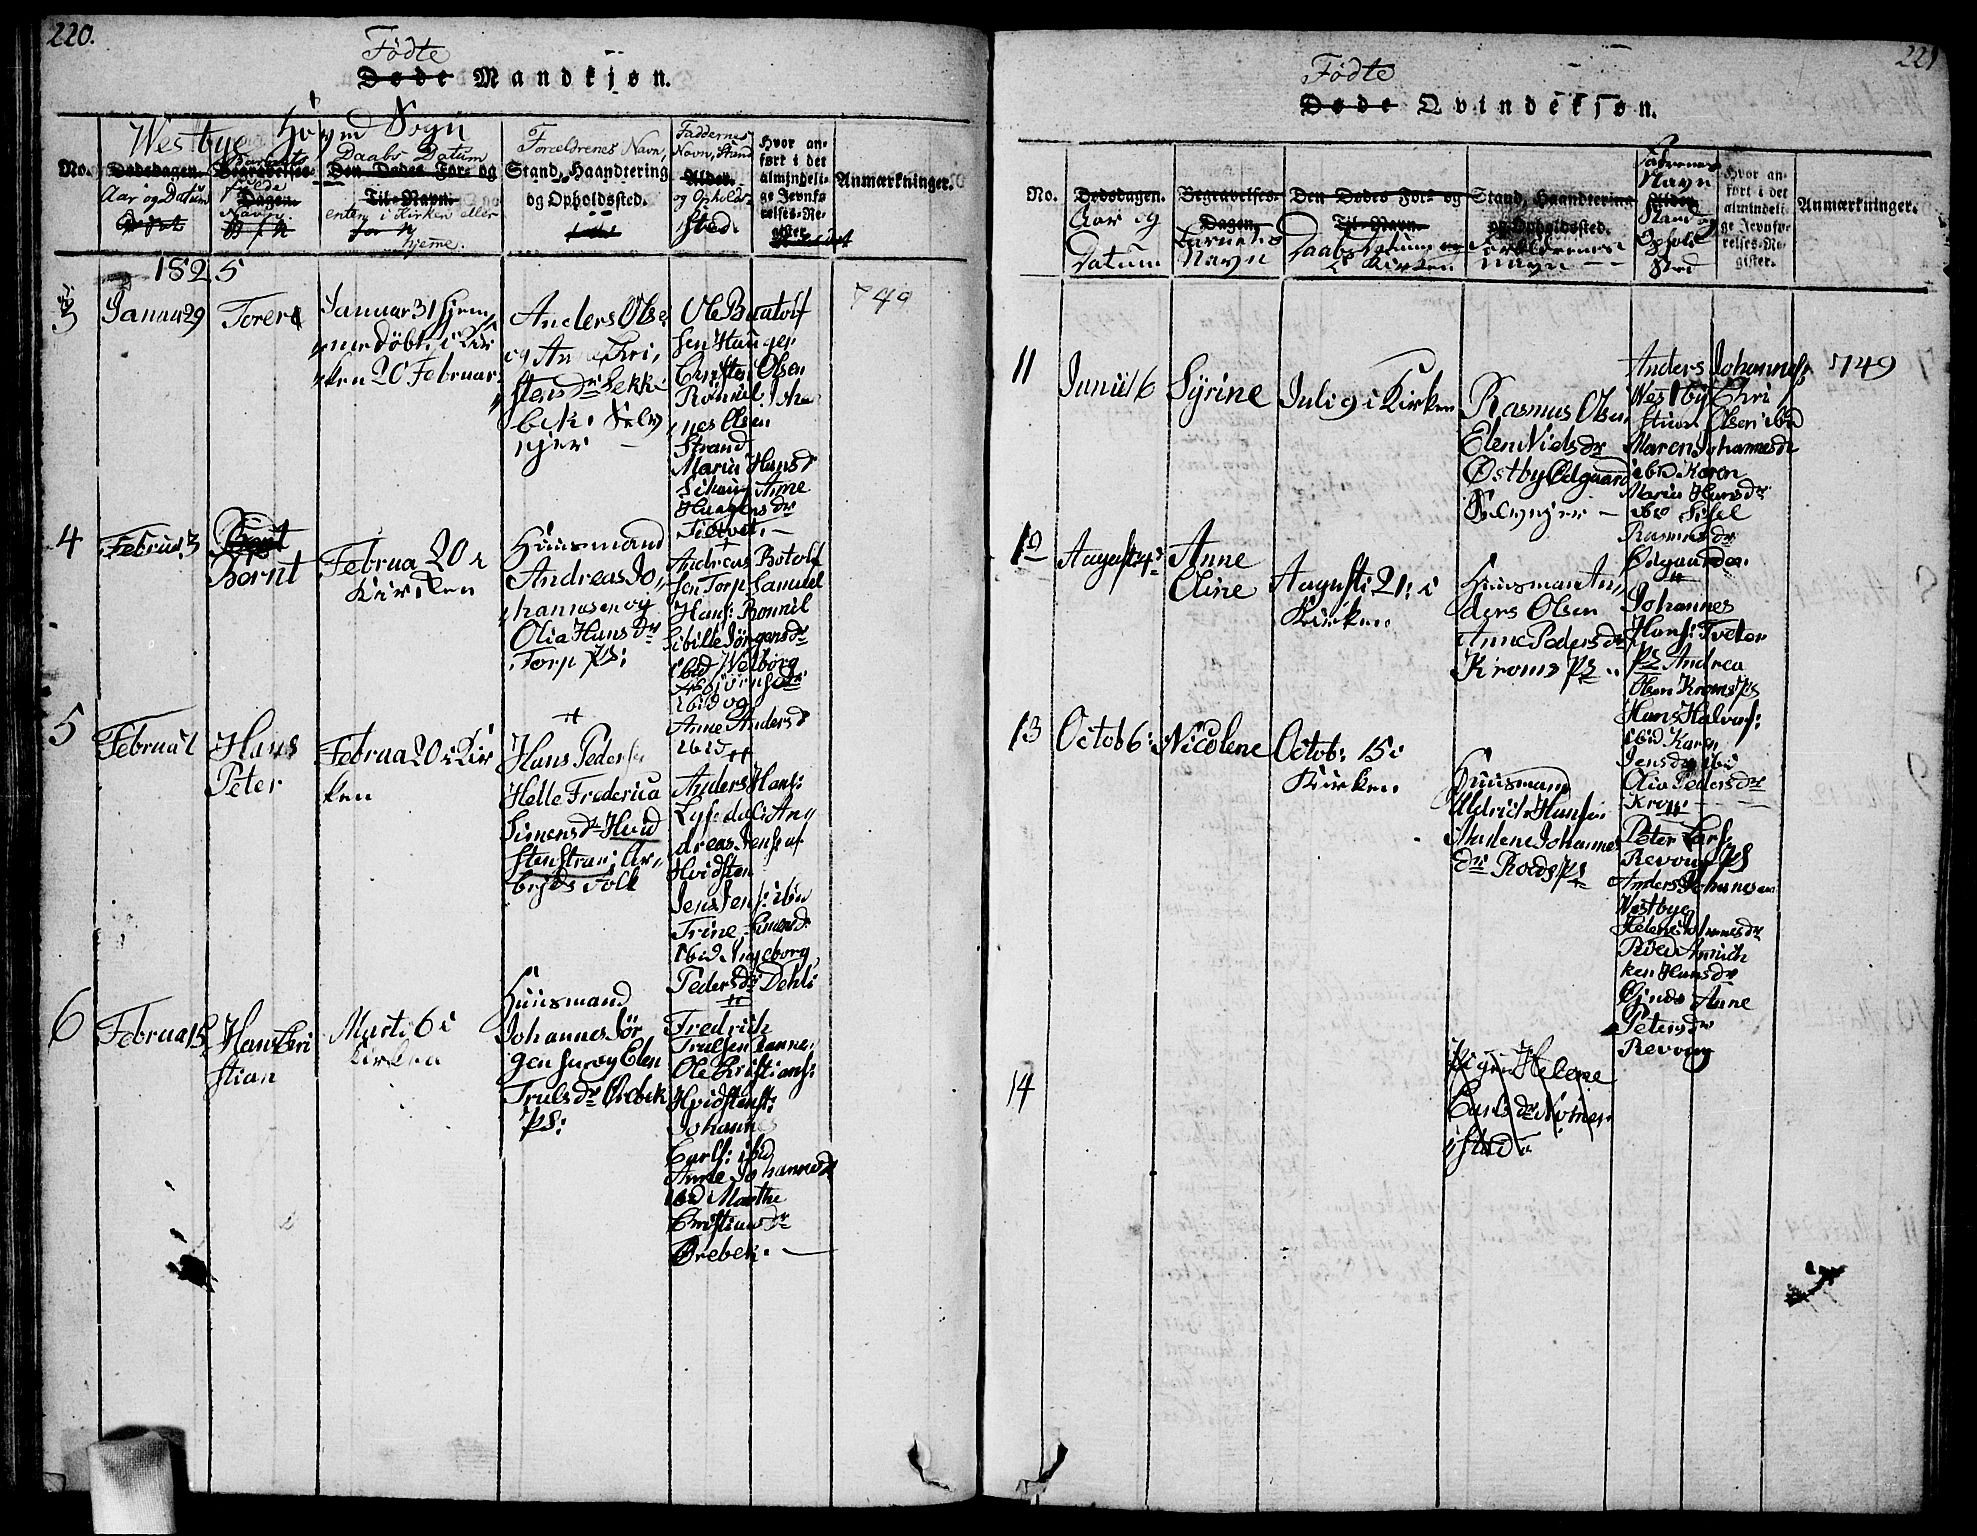 220.
Födte
Døde Mandkjøn.
Westbye Sogn
No.
Dødsdagen.
Aar og Datum
Begravelses-
Dagen.
Navn.
Daabs Datum
Den Dødes For- og
Til-Navn.
enten i Kirken eller
hjemme.
Forældrenes Navn,
Stand, Haandtering
og Opholdssted.
Faddernes
Navn, Stand
Alder.
og Opholds-
sted.
Hvor an-
ført i det
almindeli-
ge Jevnfø-
relses-Re-
gister.
Anmærkninger.
1825
3
Janua 29
Torer
Januar 31 hjem,
me döbt, i Kir
ken 20 Februar.
Anders Olse
og Kri,
stens dr
Ole
sen Haugen
Christen Olsen
Rönnil Joha
nes Olsen
Strand
Maria Hans d
Anne
Haagens dr
749
4
Februa 3
Bernt
Bernt
Februa 20 i
Kirken
Huusmand
Andreas Jo,
hannesen og
Olia Hans dr
Torp ps:
Andreas Botolf
sen Torp Samuel
Hans: Ronnil
Sibille Jörgens dr
ibid Welborg
ibid og
Anne Anders d
ibid
5
Februa 1
Hans
Peter
Februa 20 i Kir
ken
Hans Peders
Helle Frederica
Simens dr Hvid
sten Ar,
bejds Folk
Anders Hans:
An
dreas Jens af
Hvidsten
Jens Jens: ibid
Trine Simens d
ibid Ingeborg
Peders dr Dehli
6
Februa 15
Hans Cri
stian
Marti 6 i
Kirken
Huusmand
Johannes Jör
gensen og Elen
Truls dr Örebek
ps:
Fredrich
Trulsen
Ole Kristians:
Hvidsten
Johann
Carls: ibid
Anne Johannes d
ibid Marthe
Cristians dr
Örebek.
221
Födte
Døde Qvindekjøn.
No.
Dødsdagen.
Aar og
Datum
Begravelses-
Dagen.
Barnets
Navn
Den Dødes For- og
Til-Navn.
Daabs Datum
i Kirken
Stand, Haandtering
og Opholdssted.
Forældrenes
Navn
Faddernes
Navn
Alder.
Stand og
Opholds
Sted
Hvor an-
ført i det
almindeli-
ge Jevnfø-
relses-Re-
gister.
Anmærkninger.
11
Junii 16
Syrine
Juli 9 i Kirken
Rasmus Olsen
Elen Niels dr
Østby Ødgaard
Anders Johannes
Westby Chri
stian Olsen ibid
Maren Johannes dr
ibid Karen
Maria Hans dr
ibid Sisel
Rasmus dr
Ødgaarden
749
12
August 4
Anne
Oline
Augusti 21: i
Kirken
Huusman An,
ders Olsen
Anne Peders dr
Kroms ps
Johannes
Hans: Tveter
ps Andrea
Olsen Kroms ps
Hans Halvors:
ibid Karen
Jens dr ibid
Olia Peders dr
Krom
13
Octob 6:
Nicolene
Octob: 15 i
Kirken
Huusmand
Uldrich Hansen
Malene Johannes
dr Roeds ps
Peter Lars:
Revoug ps
Anders Johanesen
Westbye
Helene Johannes dr
Roed Annich
ken Hans dr
Anne
Peters dr
Revoug
14
Pigen Helene
Carls dr